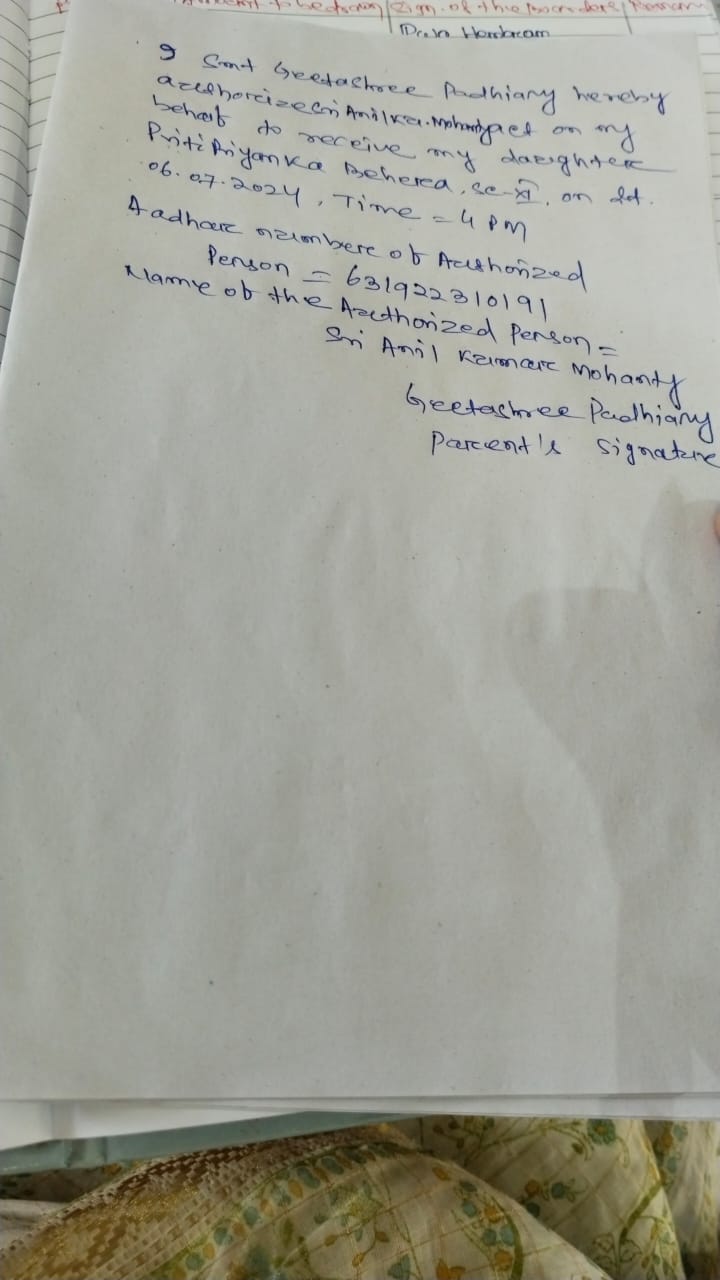 to be drawn | Sign. of the Boarders | Remar
Hembram
I Smt Geetashree Padhiary hereby
authorize Sri Anil Ku. Mohanty act on my
behalf to receive my daughter
Priti Priyanka Behera, sc-XI, on dt.
06.07.2024, Time = 4 PM
Aadhar number of Authorized
Person = 631922310191
Name of the Authorized Person =
Sri Anil Kumar Mohanty
Geetashree Padhiary
Parent's Signature